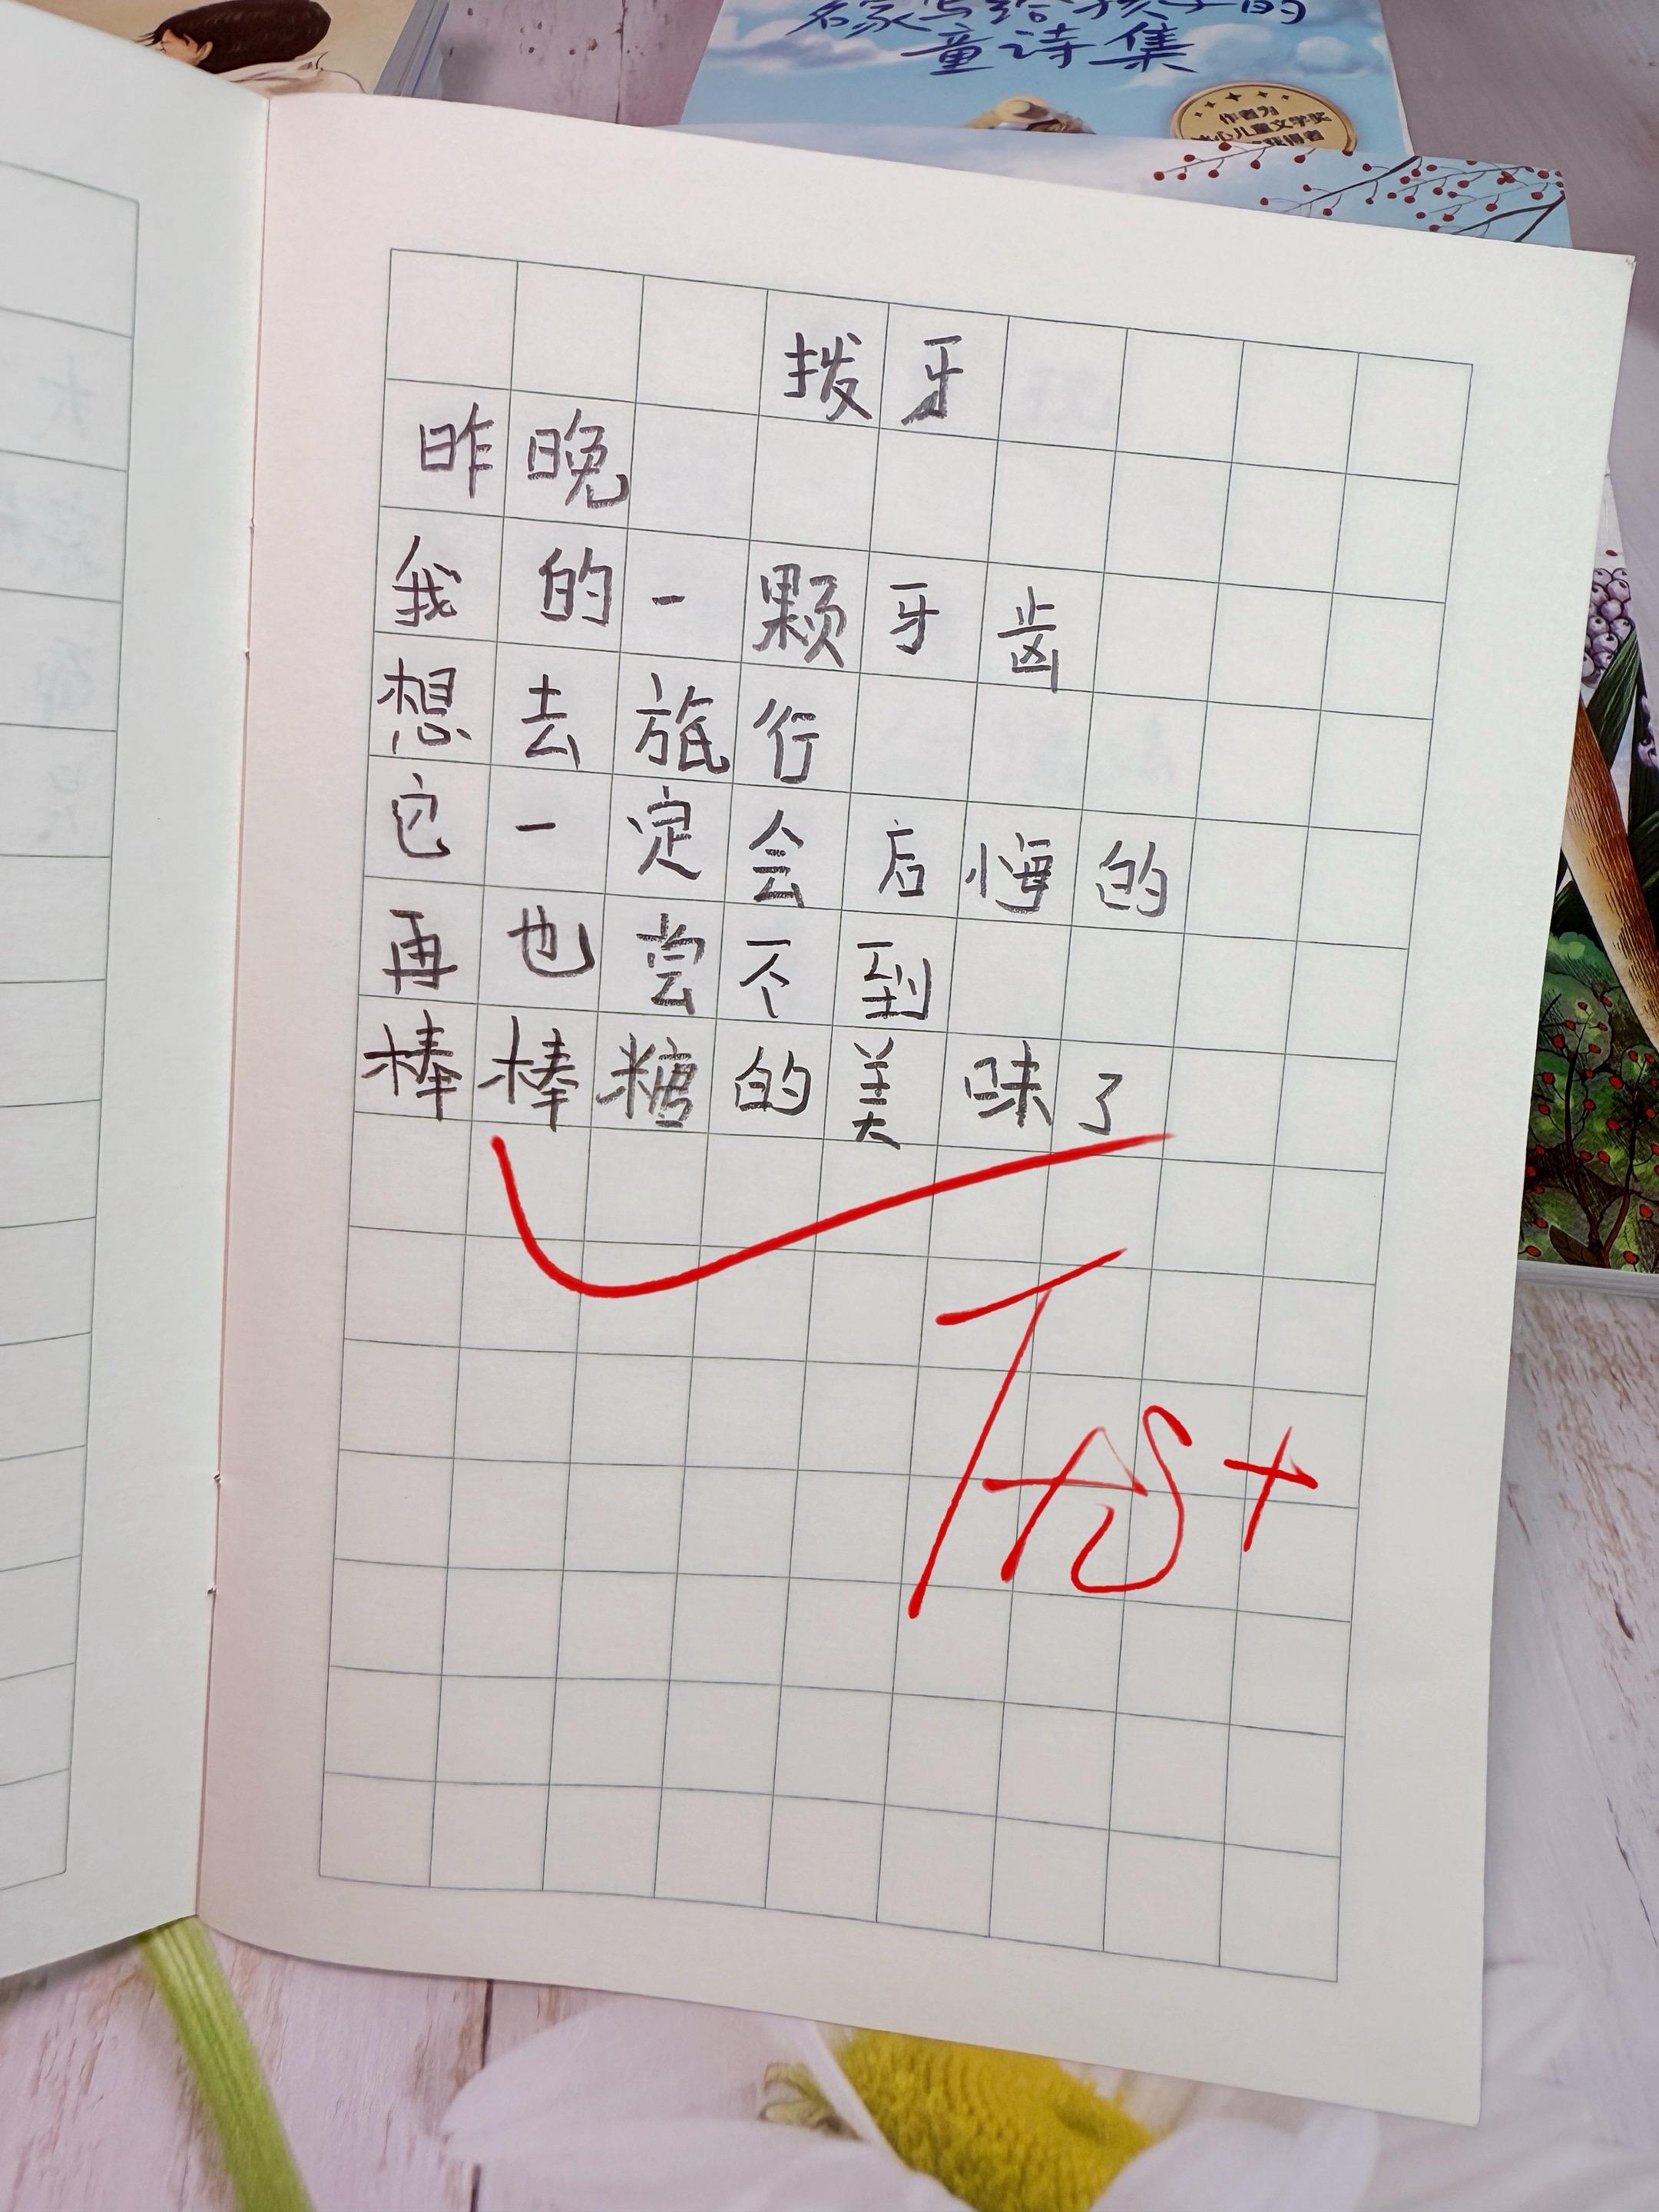 名家写给孩子的
童诗集
作者为
冰心儿童文学奖
获得者
拨牙
昨晚
我的一颗牙齿
想去旅行
它一定会后悔的
再也尝不到
棒棒糖的美味了